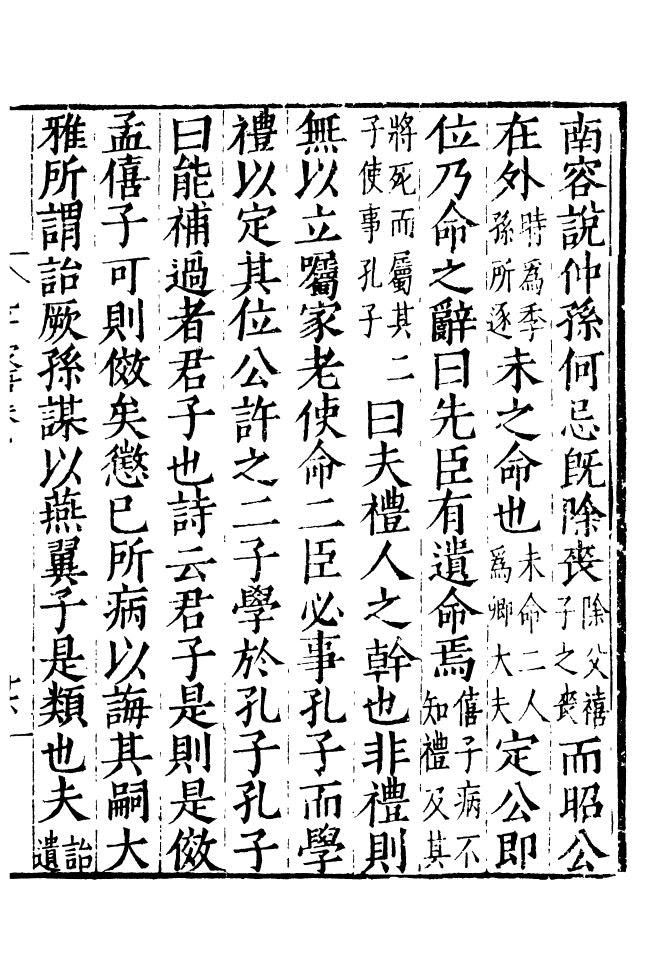 南容說仲孫何忌旣除喪除父禧子之喪而昭公
在外時爲季孫所逐未之命也未命二人爲卿大夫定公即
位乃命之辭曰先臣有遺命焉僖子病不知禮及其
將死而屬其二子使事孔子曰夫禮人之幹也非禮則
無以立囑家老使命二臣必事孔子而學
禮以定其位公許之二子學於孔子孔子
曰能補過者君子也詩云君子是則是傚
孟僖子可則傚矣懲已所病以誨其嗣大
雅所謂詒厥孫謀以燕翼子是類也夫詒遺